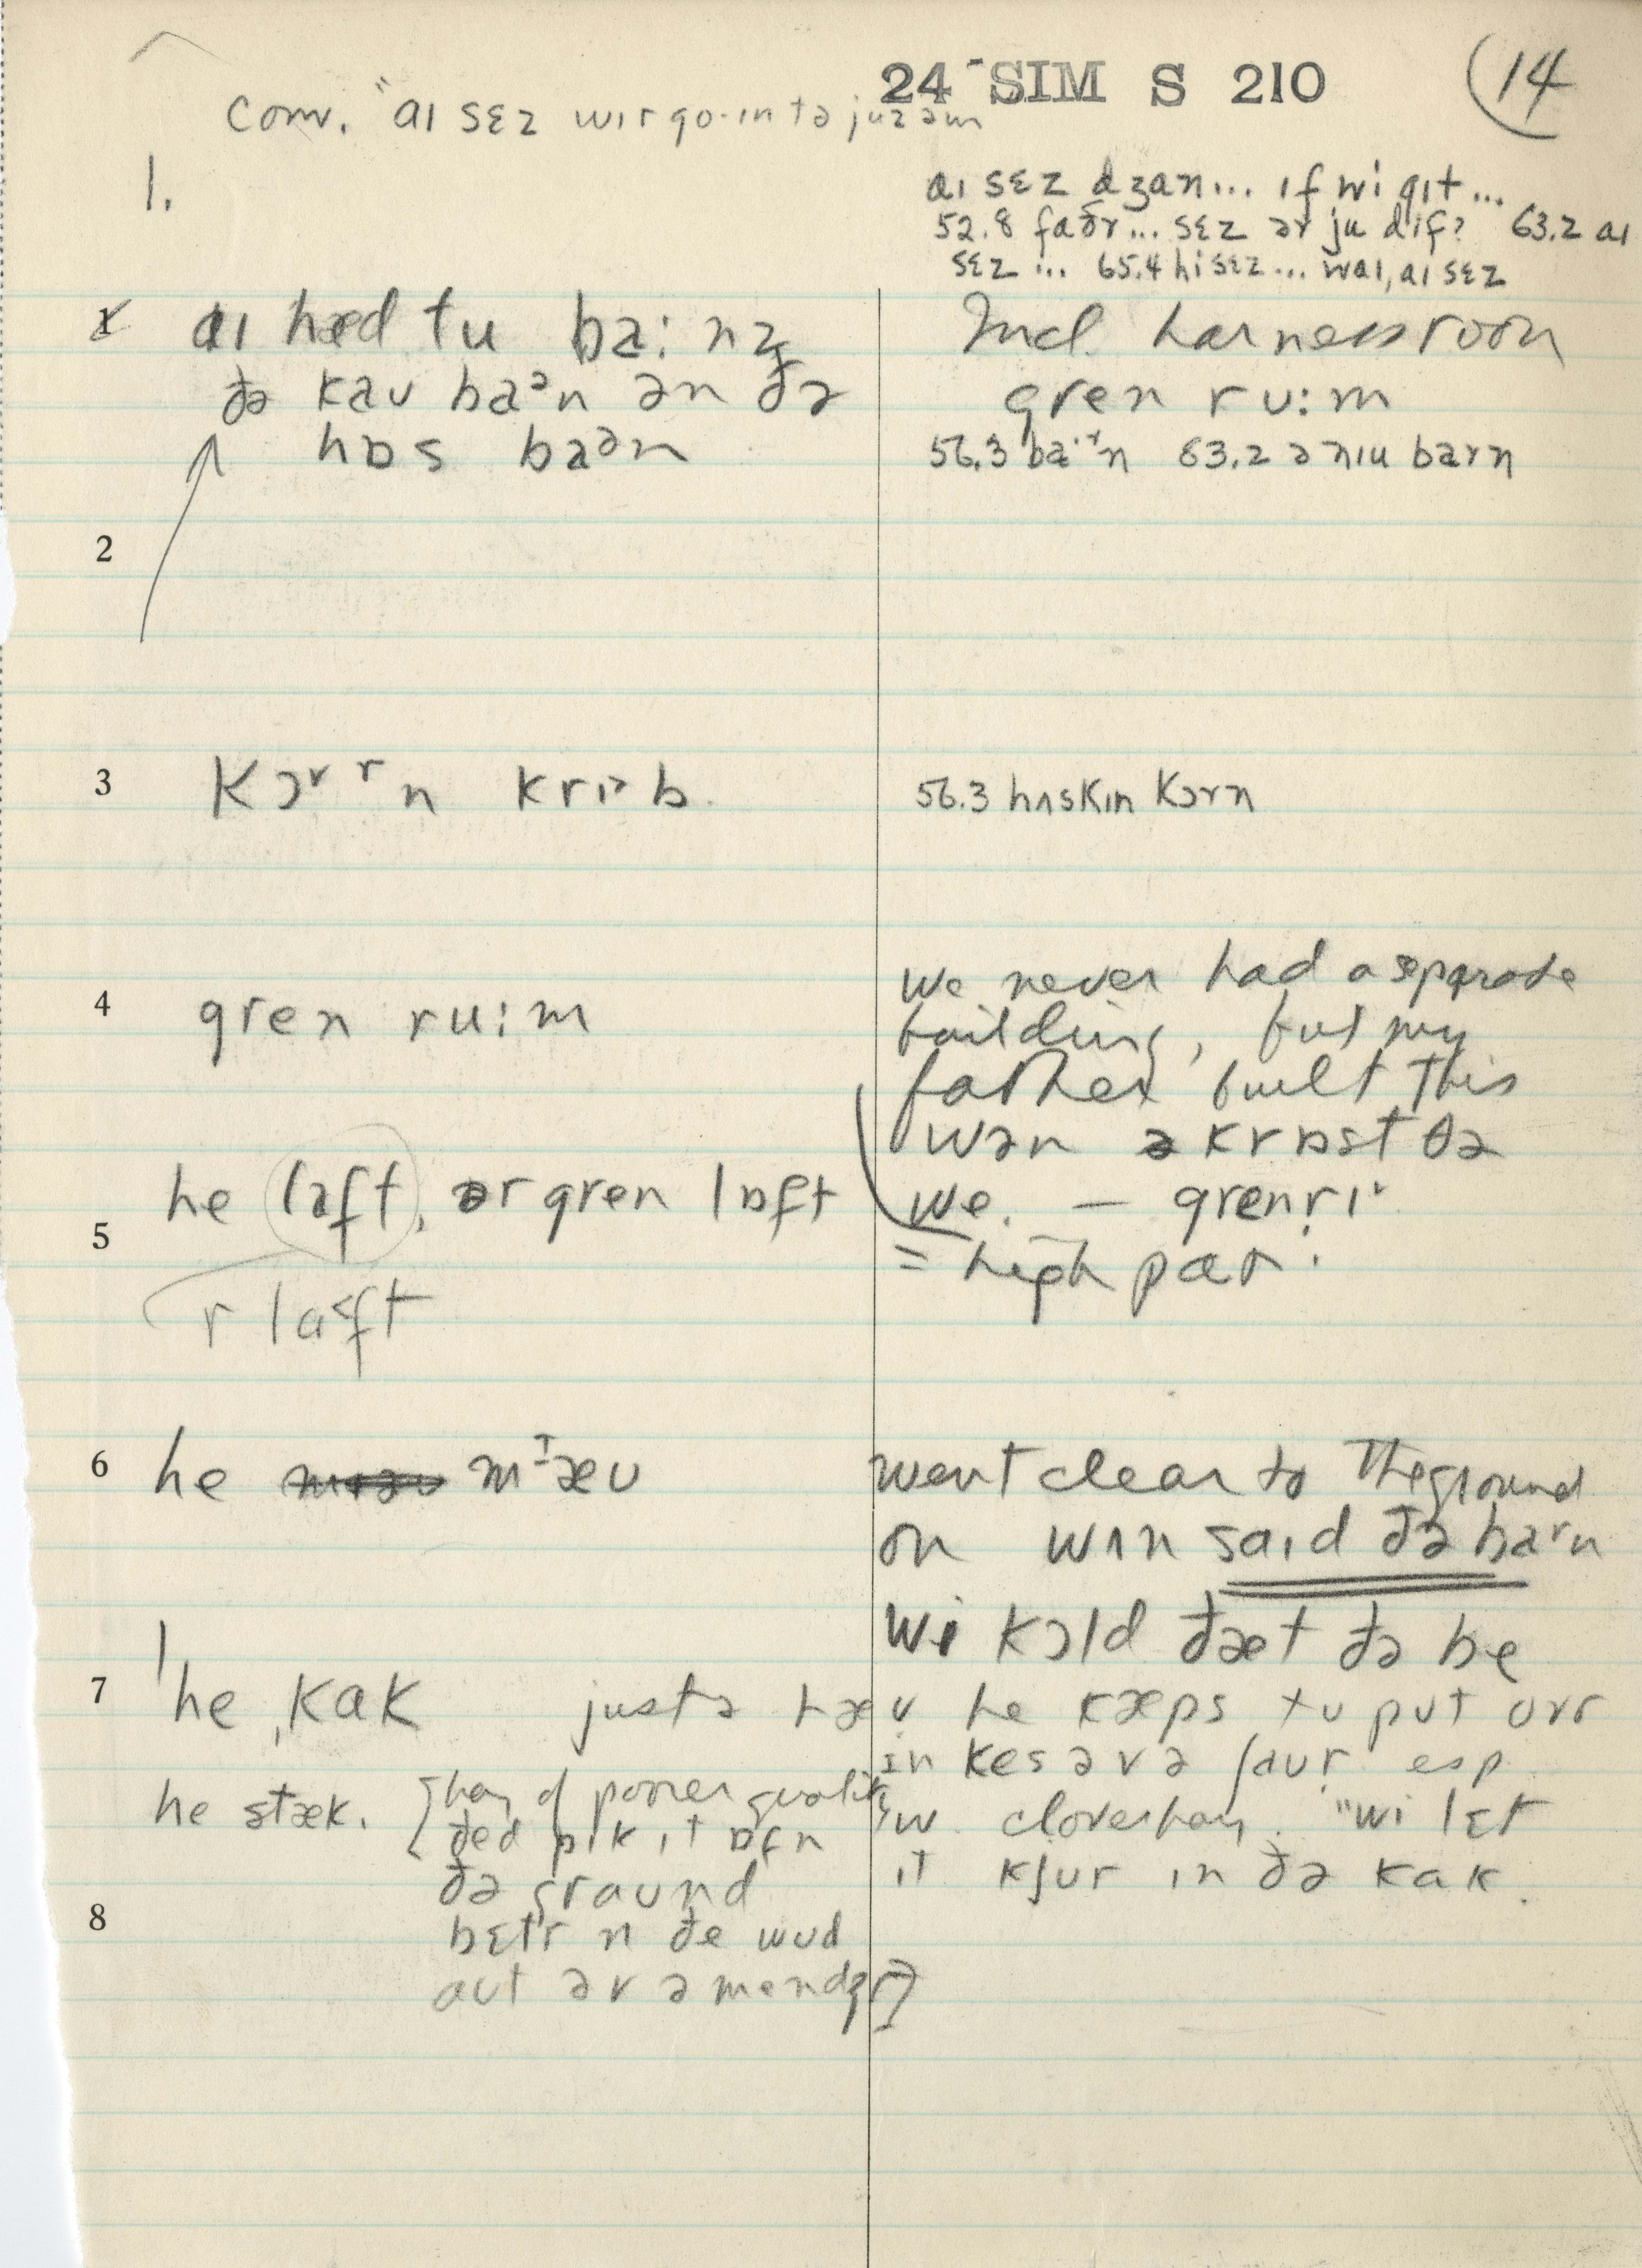 24 SIM S 210
14
conv. "aɪ sɛz wɪr go·ɪn tə juz əm
1.
aɪ sɛz dʒan... ɪf wi gɪt...
52.8 faðr... sɛz ər ju dif? 63.2 aɪ
sɛz ... 65.4 hi sɛz... wal, aɪ sɛz
1 aɪ hæd tu ba:nz
ðə kaʊ baᵊn ən ðə
hɒs baən
Incl. harness room
gren ru:m
56.3 ba·ʳn 63.2 ə nɪu barn
2
3 kɔᵛ ʳn krɪᵊb.
56.3 hʌskɪn kɔrn
4 gren ru:m
we never had a separate
building, but my
father built this
wən əkrɒst ðə
we. — grenrɪ
= high part.
5 he laft, ər gren lɒft
r laft
6 he mᶦæʊ
went clear to the ground
on wʌn saɪd ðə baʳn
wi kɔld ðæt ðə be
7 he ˌkak justə hæv he kæps tu put ovr
in kes əv ə ʃaur esp
w. clover hay. "wi lɛt
it kjur in ðə kak.
he stæk. [hay of poorer quality
ðed pɪk ɪt ɒf n
ðə graund
8
bɛtr n ðe wud
aut əv ə mendʒr]